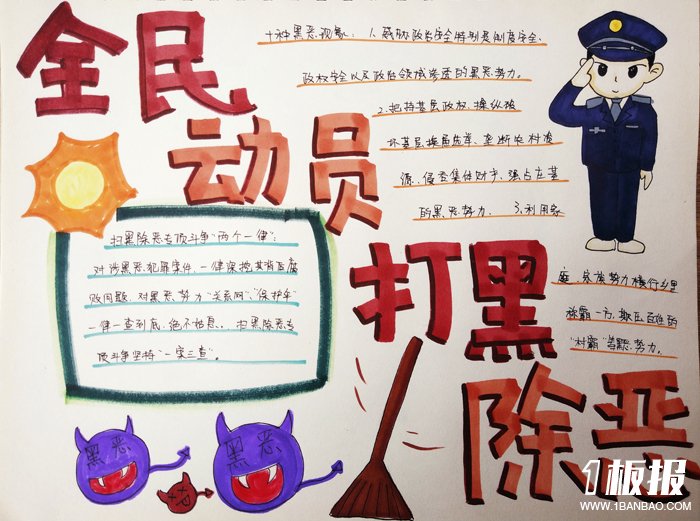 全民
动员
打黑
除恶
十种黑恶现象：1.威胁政治安全特别是制度安全、
政权安全以及政治领域渗透的黑恶势力。
2.把持基层政权、操纵破
坏基层换届选举、垄断农村资
源、侵吞集体财产、强占在基
的黑恶势力。3.利用家
族、宗族势力横行乡里
称霸一方、欺压百姓的
“村霸”等黑恶势力。
扫黑除恶专项斗争“两个一律”：
对涉黑恶犯罪案件，一律深挖其背后腐
败问题，对黑恶势力“关系网”、“保护伞”
一律一查到底，绝不姑息。扫黑除恶专
项斗争坚持“一案三查”。
黑恶
黑恶
1板报
WWW.1BANBAO.COM